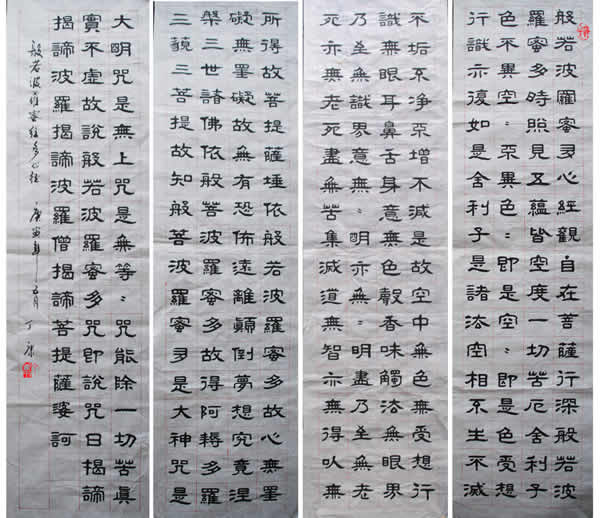 般若波羅蜜多心經觀自在菩薩行深般若波
羅蜜多時照見五蘊皆空度一切苦厄舍利子
色不異空〻不異色〻即是空〻即是色受想
行識亦復如是舍利子是諸法空相不生不滅
不垢不净不增不減是故空中無色無受想行
識無眼耳鼻舌身意無色聲香味觸法無眼界
乃至無識界意無〻明亦無〻明盡乃至無老
死亦無老死盡無苦集滅道無智亦無得以無
所得故菩提薩埵依般若波羅蜜多故心無罣
礙無罣礙故無有恐怖遠離顛倒夢想究竟涅
槃三世諸佛依般若波羅蜜多故得阿耨多羅
三藐三菩提故知般若波羅蜜多是大神咒是
大明咒是無上咒是無等〻咒能除一切苦真
實不虛故說般若波羅蜜多咒即說咒曰揭諦
揭諦波羅揭諦波羅僧揭諦菩提薩婆訶
般若波羅蜜 多心經 庚寅年 月